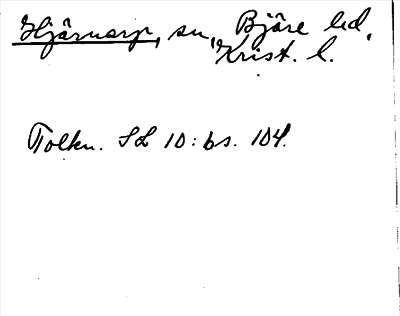 Hjärnarp, sn, Bjäre hd,
Krist. l.
Tolkn. SL 10: bs. 104.